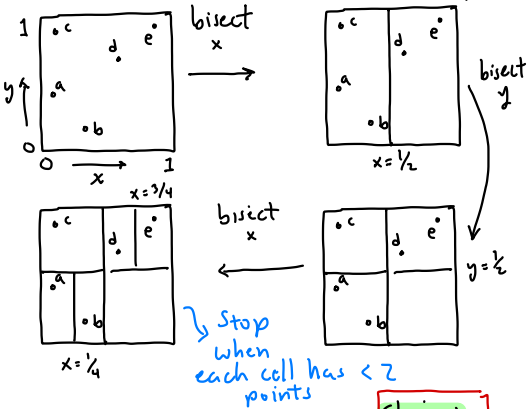 1
c
e
d
a
b
y
0
0
x
1
bisect
x
c
e
d
a
b
x=1/2
bisect
y
c
e
d
a
b
y=1/2
bisect
x
x=3/4
c
e
d
a
b
x=1/4
Stop
when
each cell has < 2
points